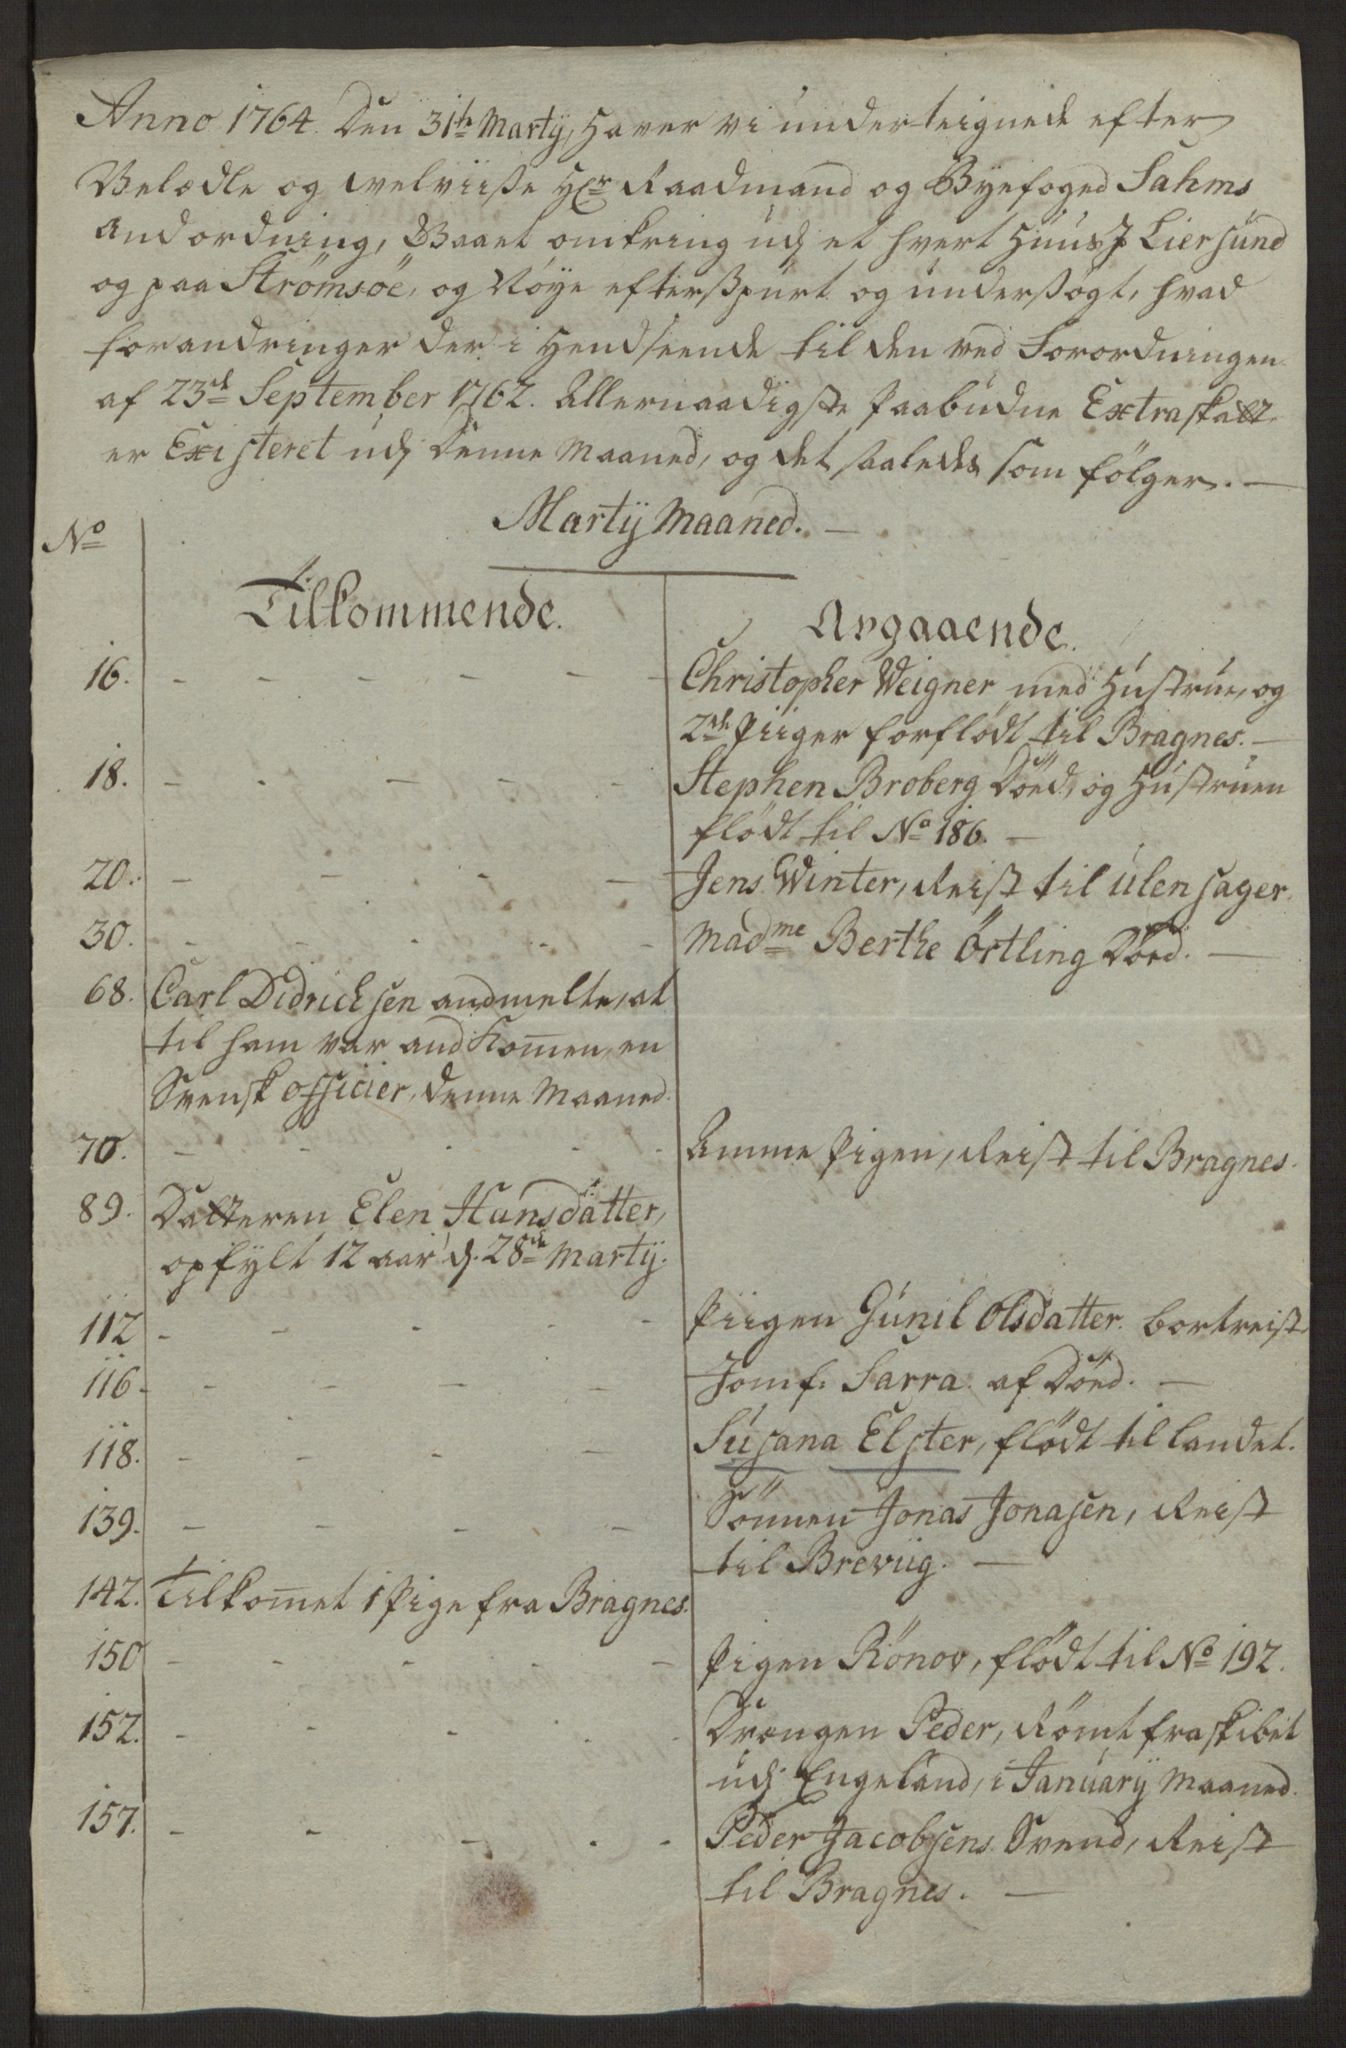 Anno 1764. Den 31te Martÿ, haver vi underteignede efter
Velædle og velviise Hr Raadmand og Byefoged Sahms
andordning, Waaet omkring udj et hvert Huus I Liersund
og paa Strömsöe, og Nöye efterspurt og undersögt, hvad
forandringer der i Hendseende til den ved Forordningen
af 23de September 1762. Allernaadigste Paabudne Extraskatt
er Existeret udj Denne Maaned, og det saaledes som fölger. —
Martÿ Maaned. —
No
Tilkommende. Avgaaende.
16. - - - - - - Christopher Weigner med Hustrue, og
2de Piiger forflödt til Bragnes. —
18. - - - - - Stephen Broberg Död, og Hustruen
flödt til No 186. —
20. - - - - Jens Winter, Reist til Ulensager.
30. - - - - - Madme Berthe Örtling Död. —
68. Carl Didrichsen andmelte, at
til ham var and Komen, en
Svensk officier, denne Maaned.
70. - - - - - Amme Pigen, Reist til Bragnes.
89. Datteren Elen Hansdatter,
opfylt 12 aar d. 28de Martÿ.
112 - - - - - Piigen Gunil Olsdatter. bortreist
116. - - - - Jomf. Sarra. af Död. —
118. - - - - Susana Elster, flödt til landet.
139. - - - - Sönnen Jonas Jonasen, Reist
til Breviig. —
142. Tilkomet 1 Pige fra Bragnes.
150 - - - - - Pigen Rönov, flödt til No 192.
152. - - - - - Drengen Peder, Römt fra skibet
udj Engeland, i Januarÿ Maaned.
157. - - - - - Peder Jacobsens Svend, Reist
til Bragnes. —